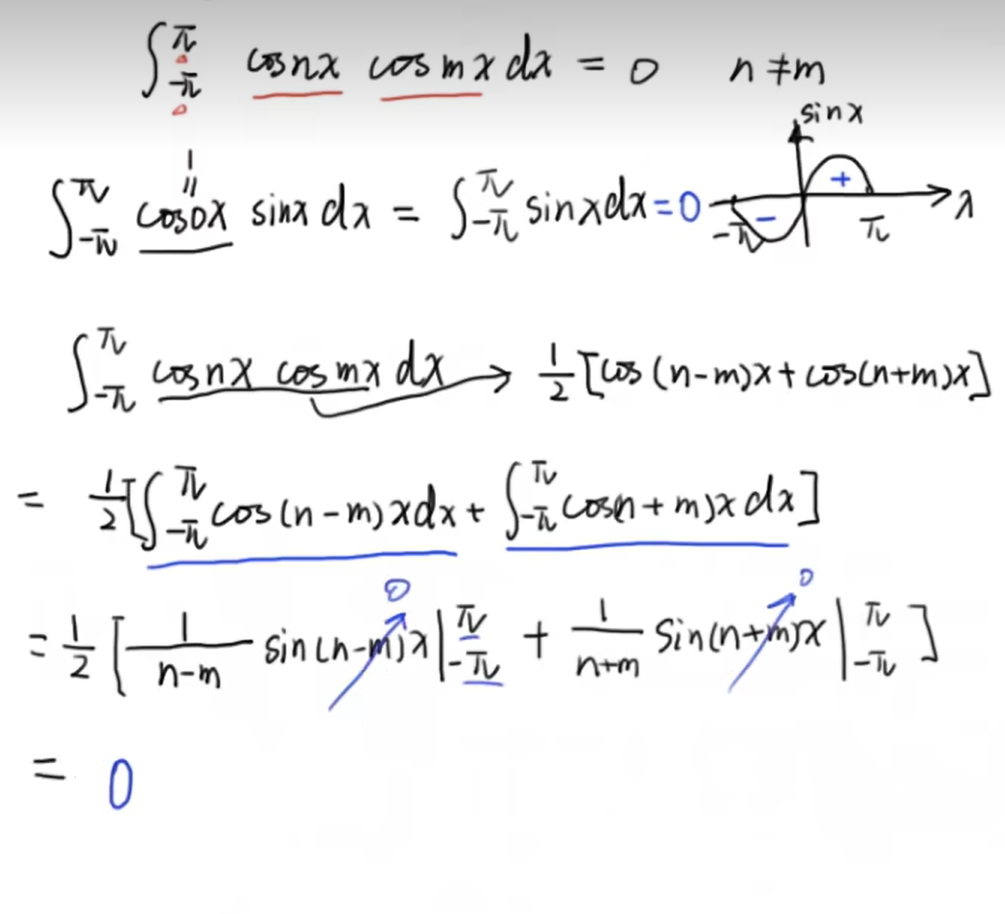 ∫_{-π}^{π} cosnx cosmx dx = 0   n≠m
sinx
1
॥
∫_{-π}^{π} cos0x sinx dx = ∫_{-π}^{π} sinxdx = 0   -π   -   +   π   x
∫_{-π}^{π} cosnx cosmx dx → 1/2 [cos(n-m)x + cos(n+m)x]
= 1/2 [∫_{-π}^{π} cos(n-m)xdx + ∫_{-π}^{π} cos(n+m)x dx]
0   0
= 1/2 [1/(n-m) sin(n-m)x |_{-π}^{π} + 1/(n+m) sin(n+m)x |_{-π}^{π}]
= 0